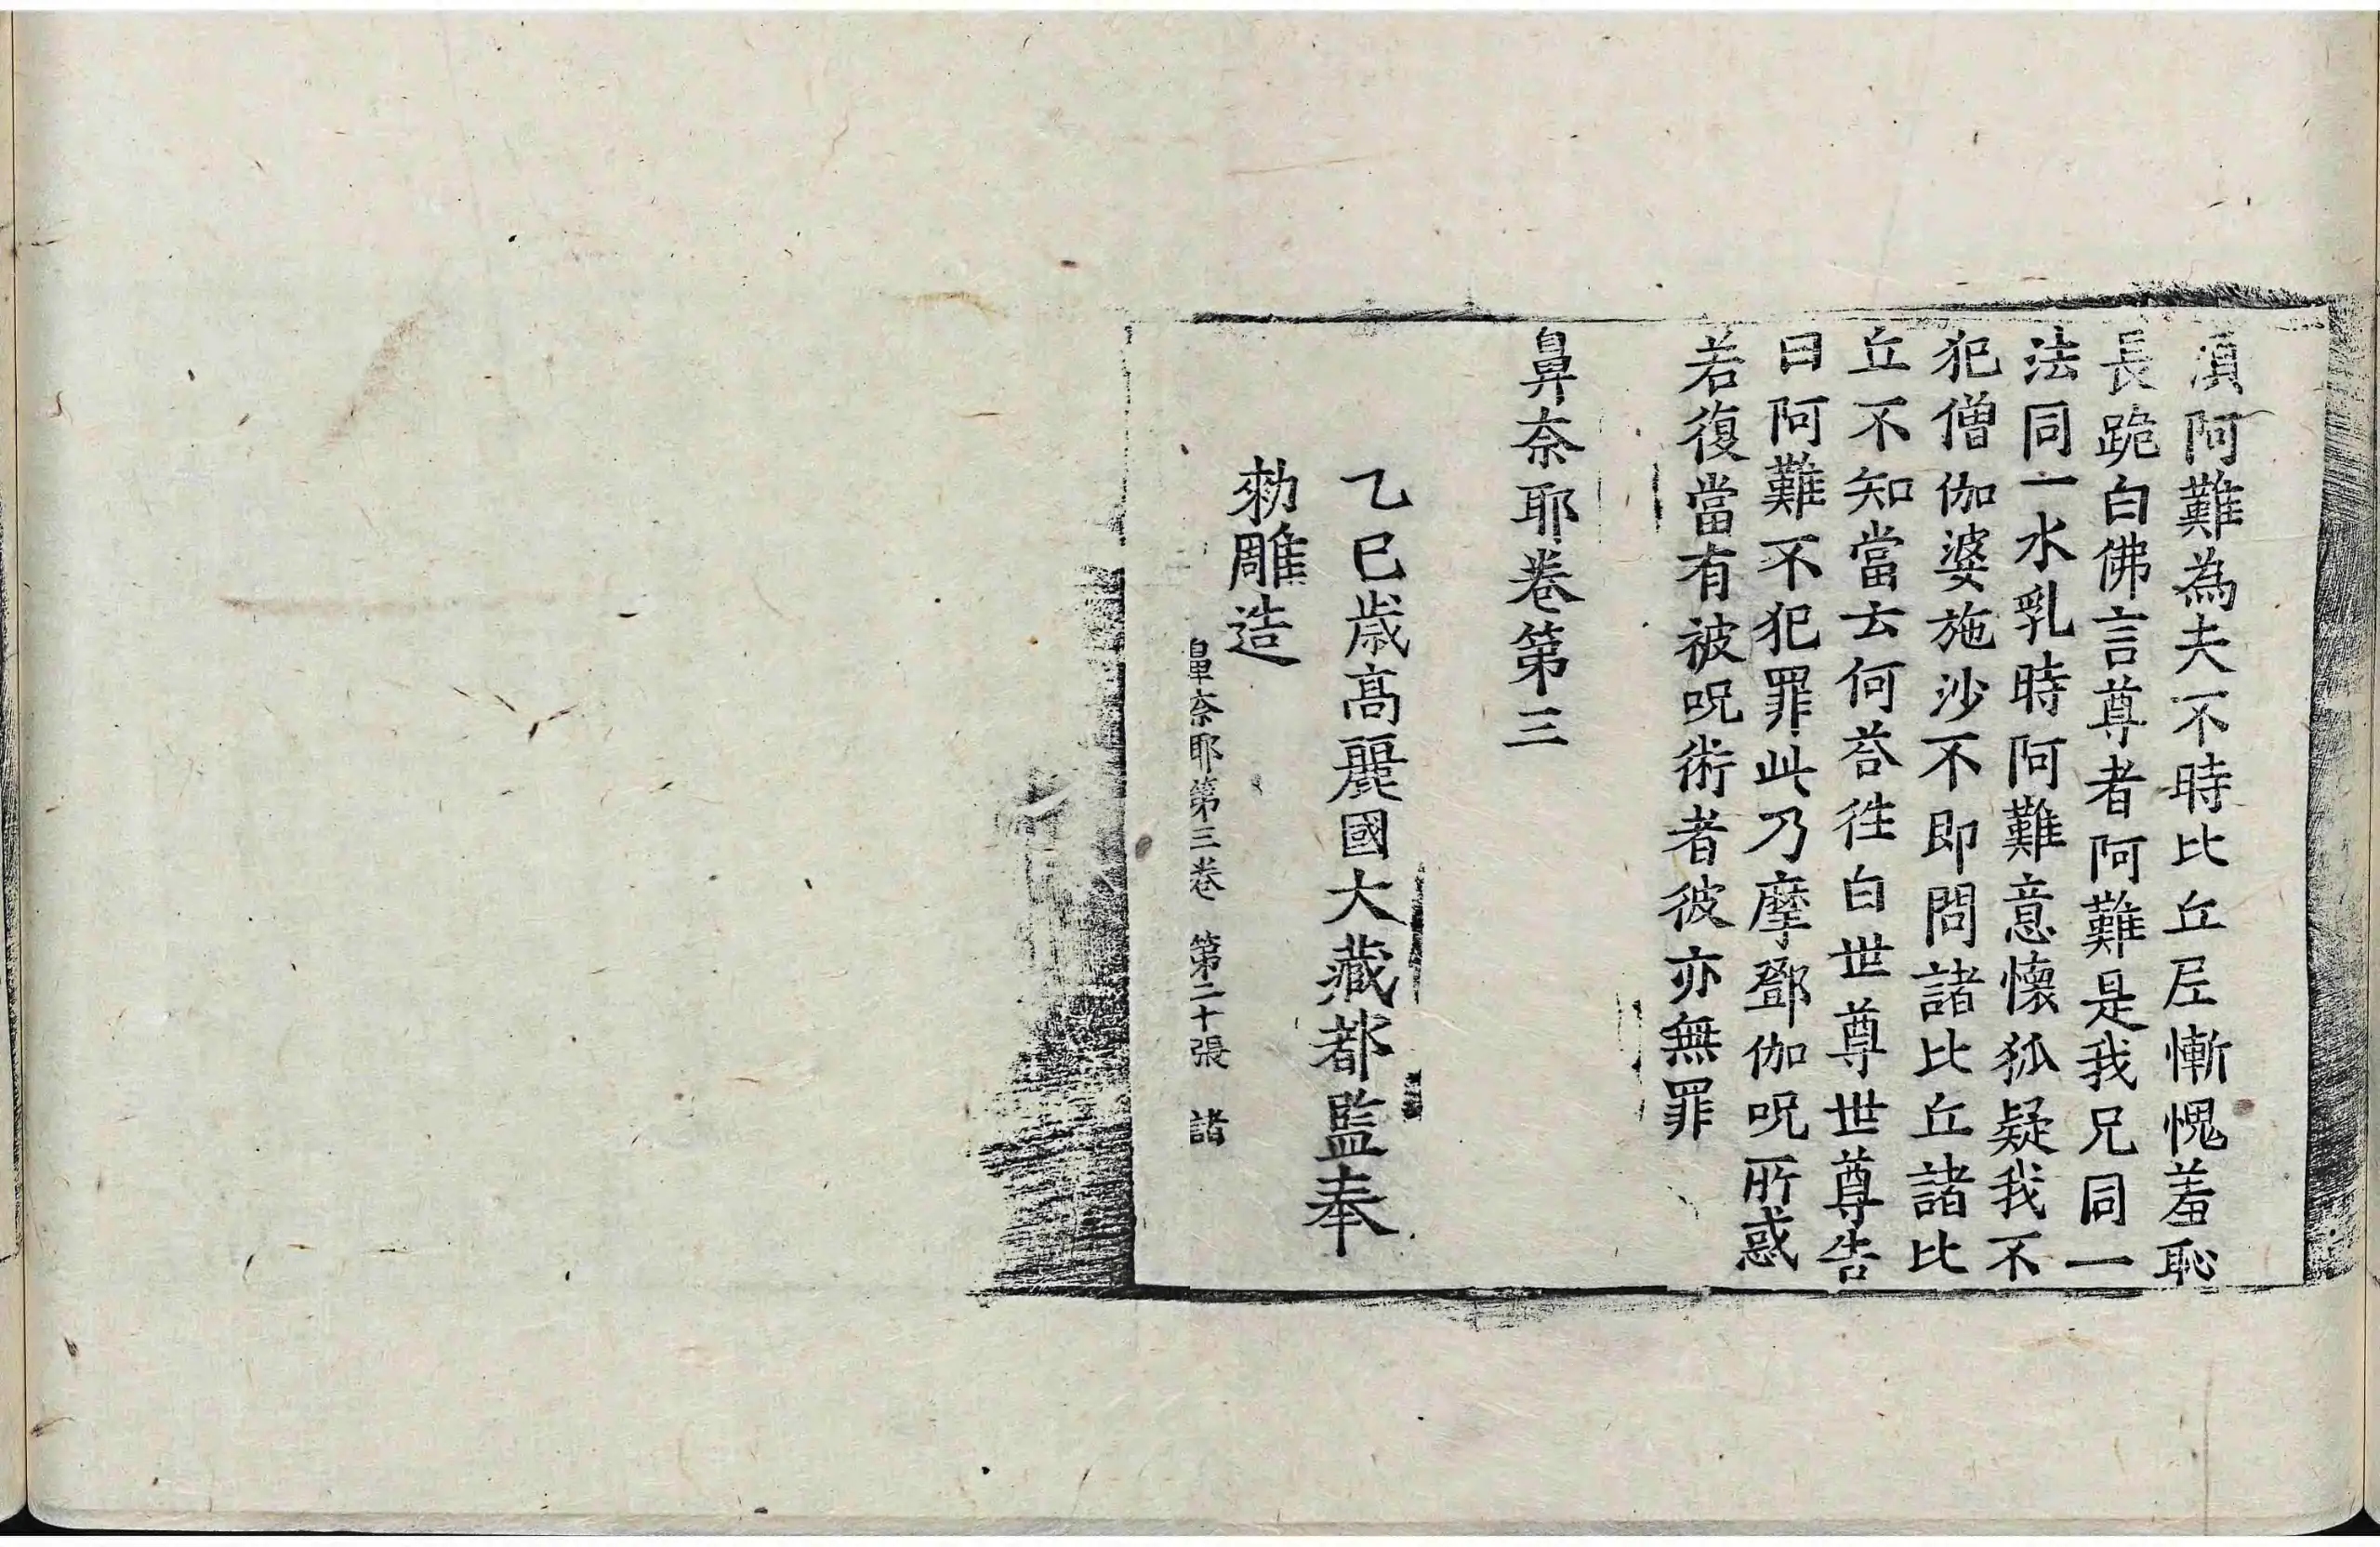 湏阿難為夫不時比丘尼慚愧羞恥
長跪白佛言尊者阿難是我兄同一
法同一水乳時阿難意懷狐疑我不
犯僧伽婆施沙不即問諸比丘諸比
丘不知當去何荅徃白世尊世尊告
曰阿難不犯罪此乃摩鄧伽呪所惑
若復當有被呪術者彼亦無罪
鼻奈耶卷第三
乙巳歳高麗國大藏都監奉
勑雕造
鼻奈耶第三卷 第二十張 諸